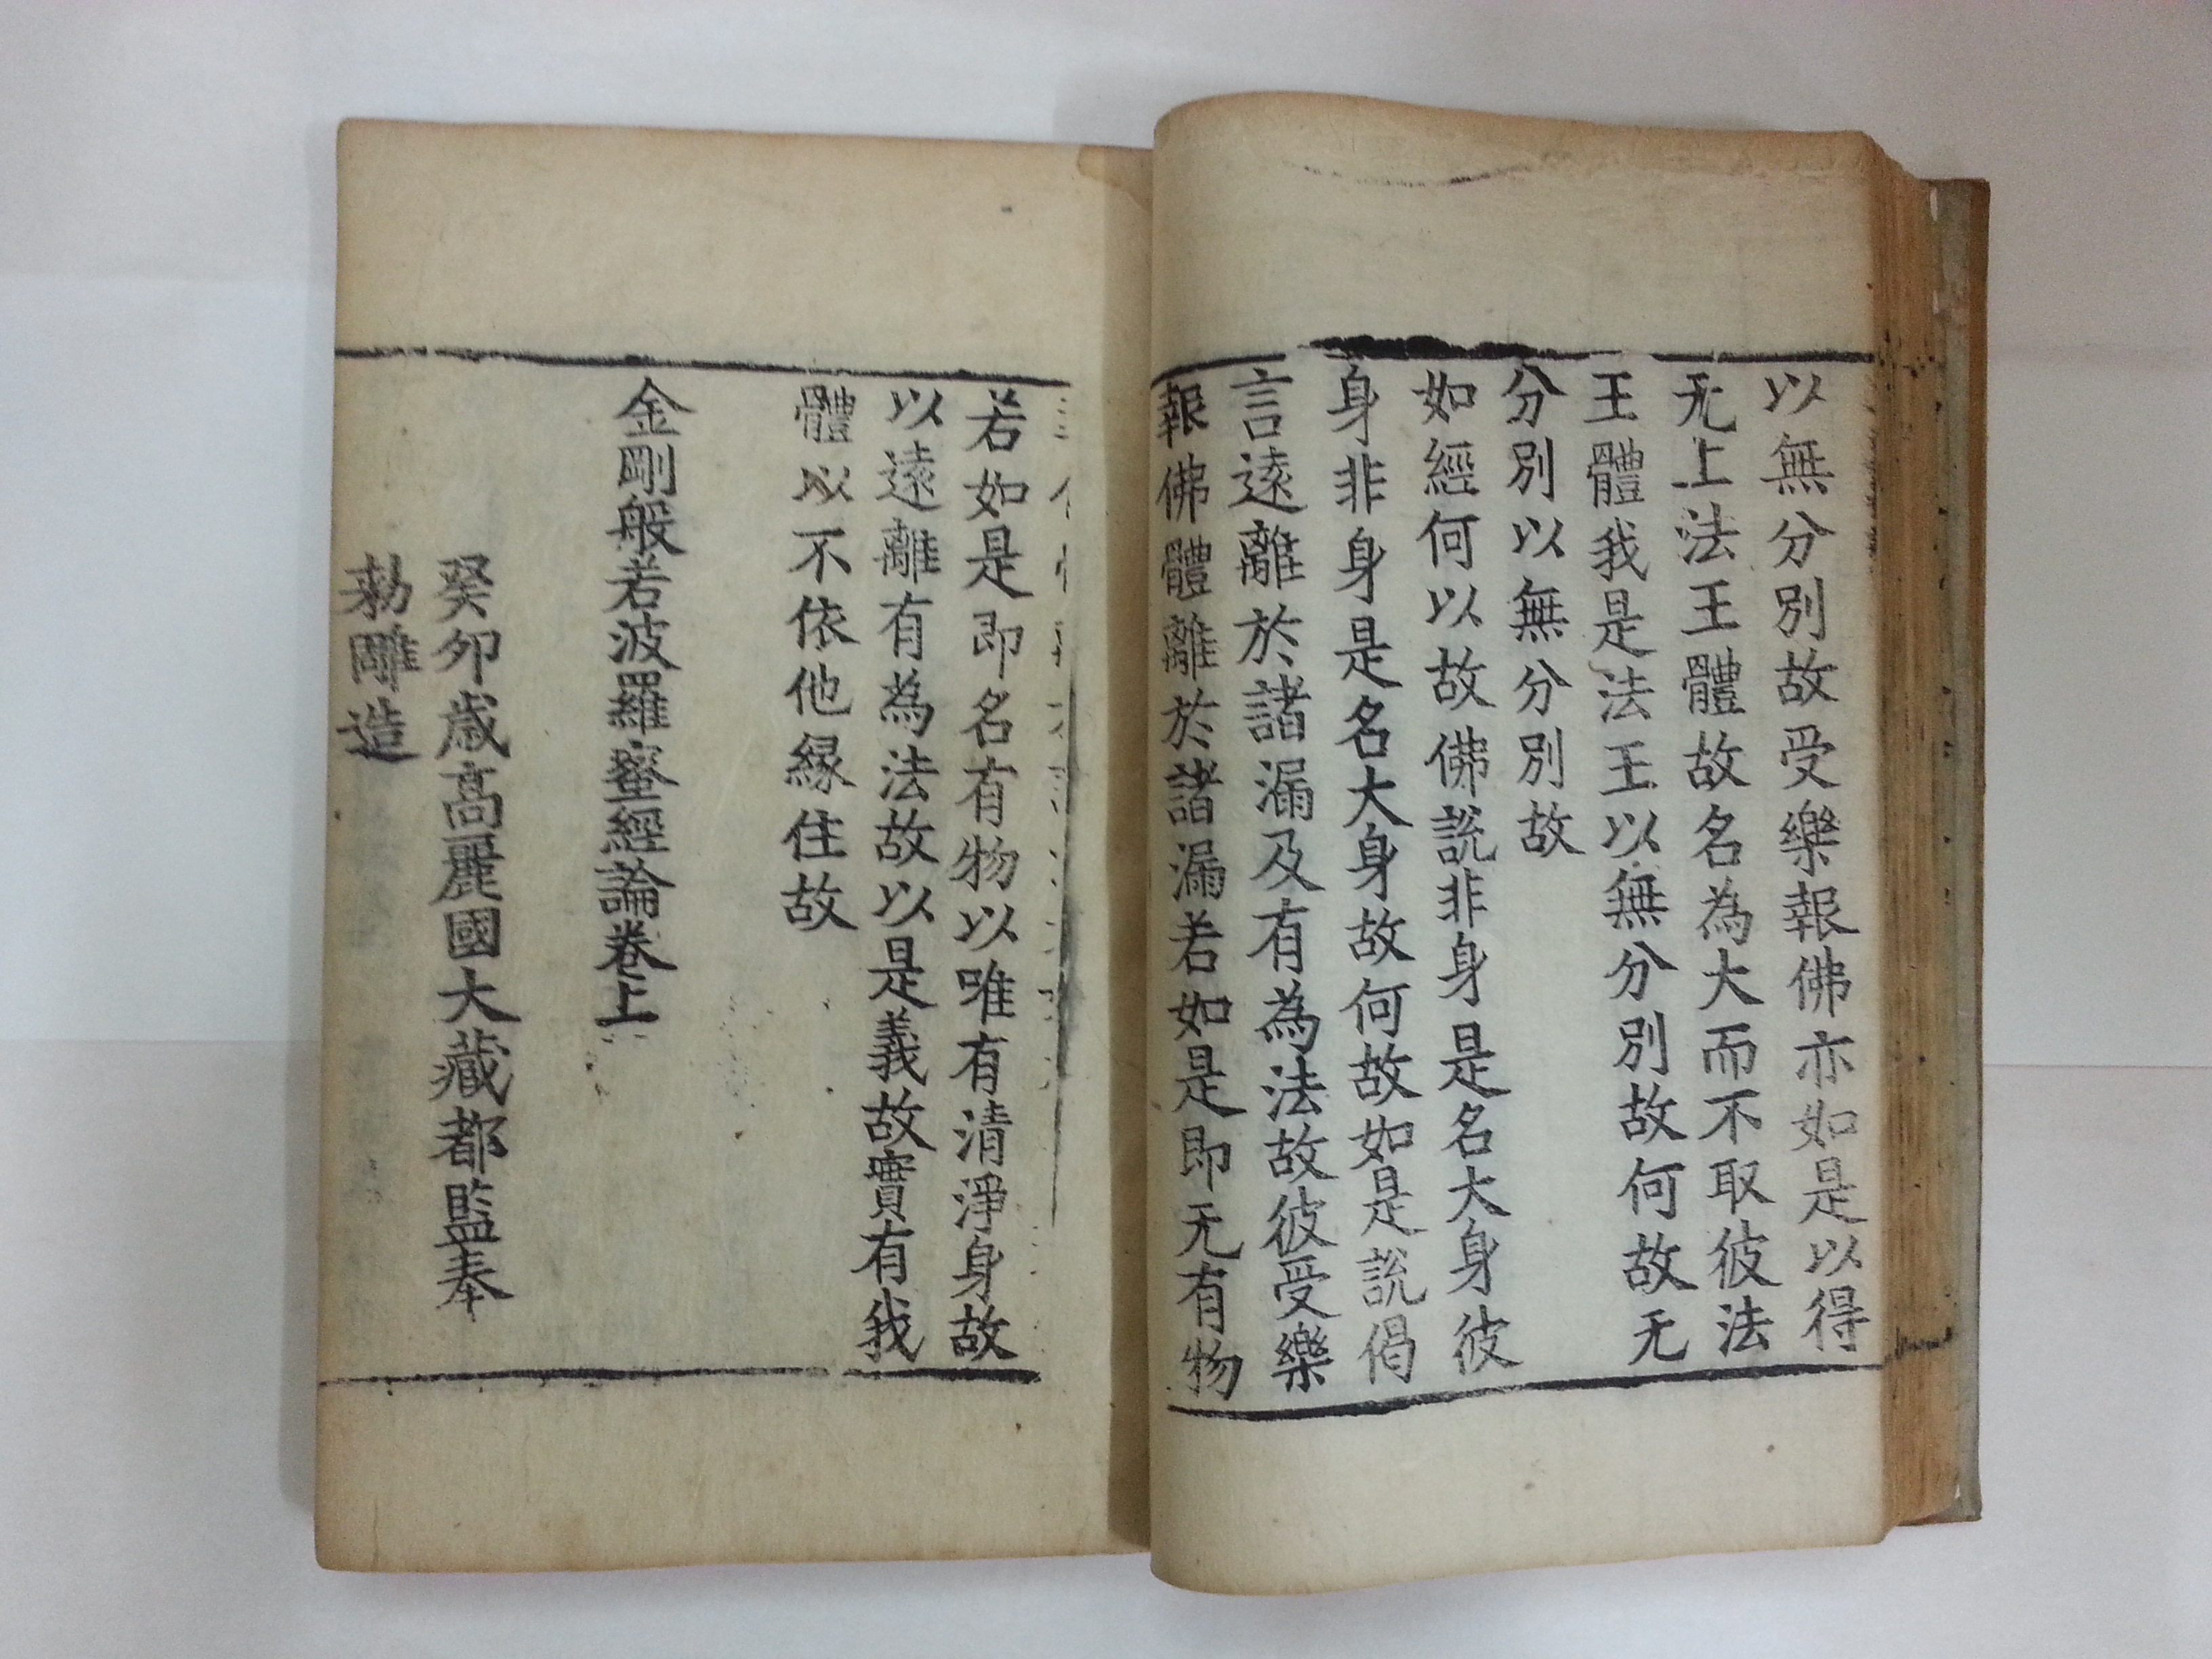 以無分別故受樂報佛亦如是以得
无上法王體故名為大而不取彼法
王體我是法王以無分別故何故无
分別以無分別故
如經何以故佛說非身是名大身彼
身非身是名大身故何故如是說偈
言遠離於諸漏及有為法故彼受樂
報佛體離於諸漏若如是即无有物
若如是即名有物以唯有清淨身故
以遠離有為法故以是義故實有我
體以不依他緣住故
金剛般若波羅蜜經論卷上
癸卯歲高麗國大藏都監奉
勅雕造